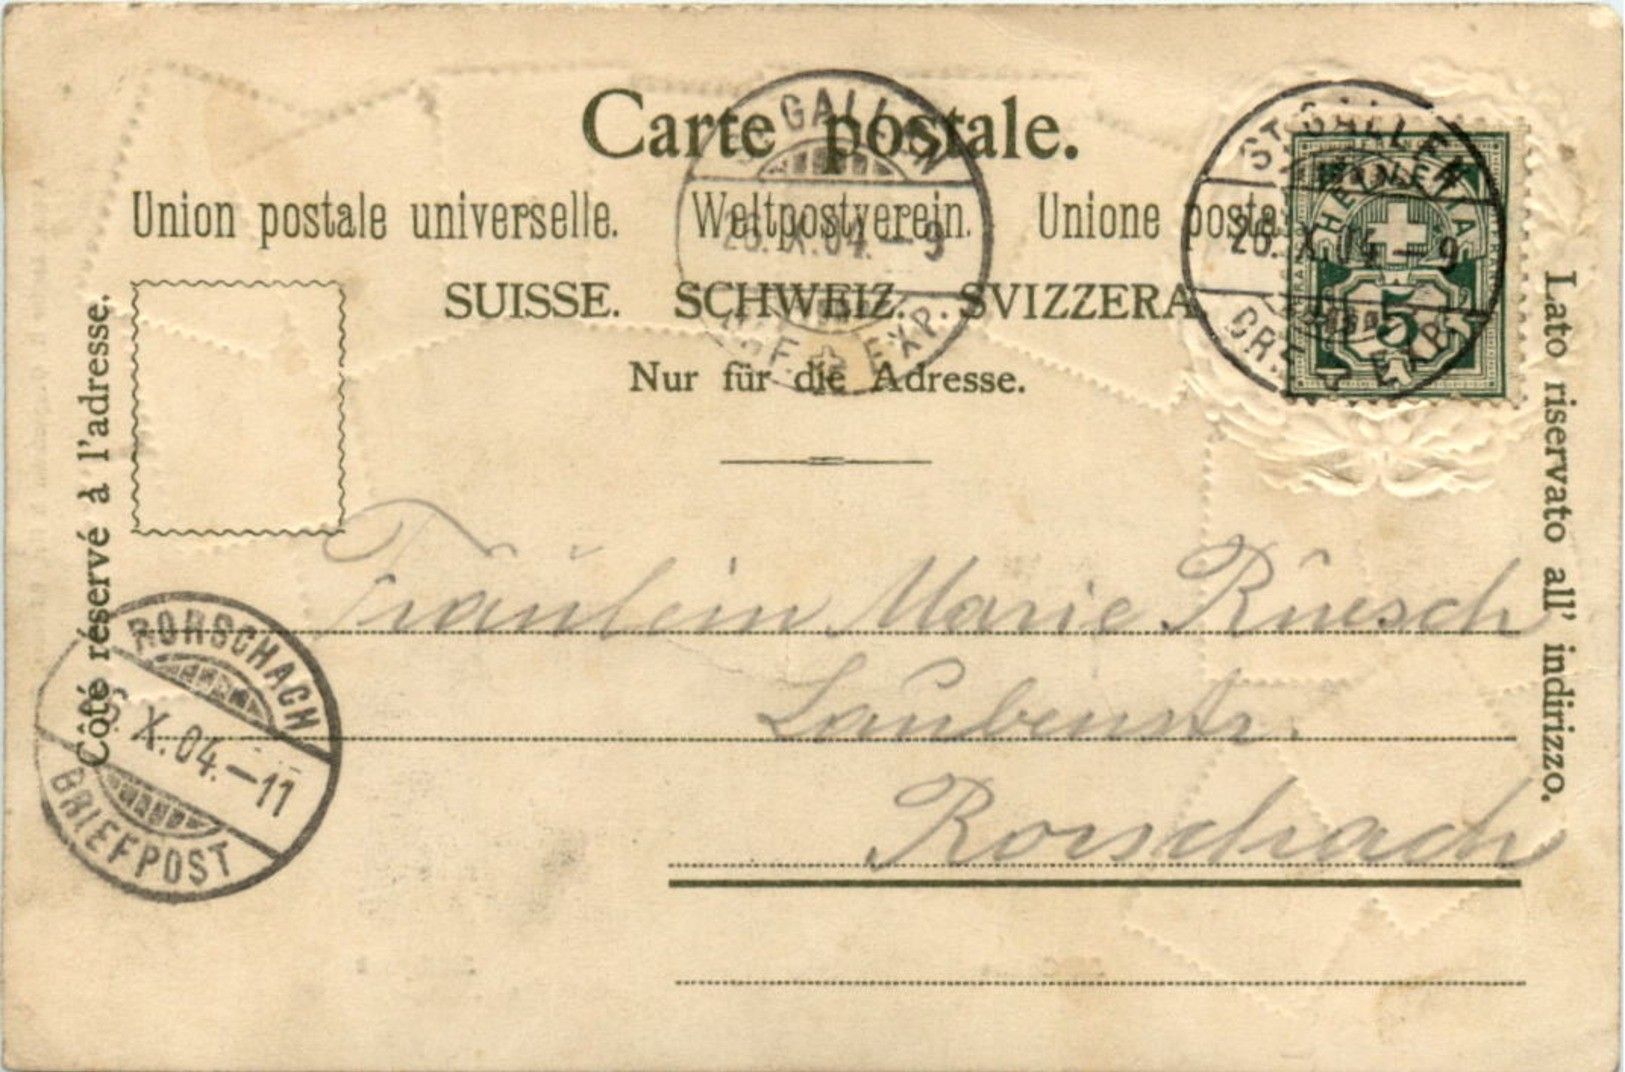 Carte postale.
Union postale universelle. Weltpostverein. Unione posta
SUISSE. SCHWEIZ. SVIZZERA.
Nur für die Adresse.
Côté réservé à l'adresse.
Lato riservato all' indirizzo.
ST. GALLEN
26. X. 04. – 9
BRIEF EXP.
ST. GALLEN
26. X. 04 – 9
BRIEF EXP.
HELVETIA
5
Fräulein Marie Rüesch
Laubenstr.
Rorschach
RORSCHACH
26. X. 04. – 11
BRIEFPOST